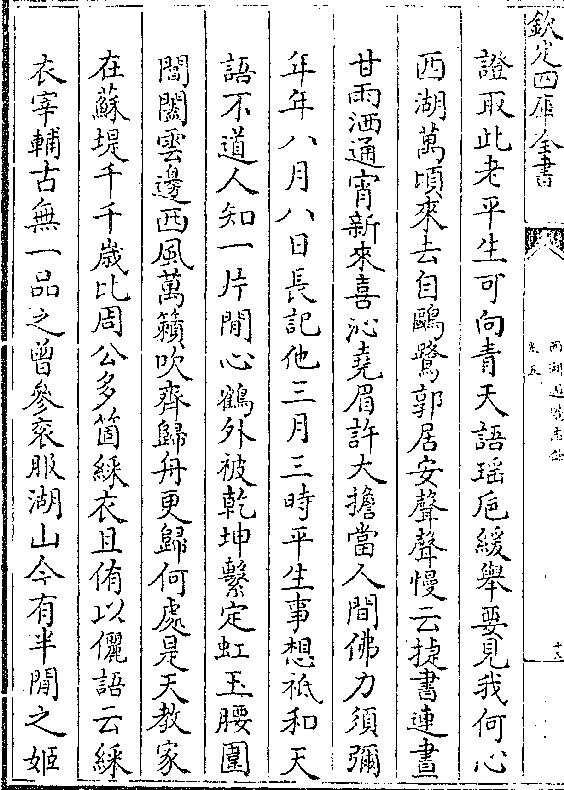 欽定四庫全書
西湖遊覽志餘
卷五
證取此老平生可向青天語瑶巵緩舉要見我何心
西湖萬頃來去自鷗鷺郭居安聲聲慢云捷書連晝
甘雨洒通宵新來喜沁堯眉許大擔當人間佛力須彌
年年八月八日長記他三月三時平生事想祗和天
語不道人知一片閒心鶴外被乾坤繫定虹玉腰圍
閶闔雲邊西風萬籟吹齊歸舟更歸何處是天教家
在蘇堤千千歲比周公多箇綵衣且侑以儷語云綵
衣宰輔古無一品之曾參衮服湖山今有半閒之姬